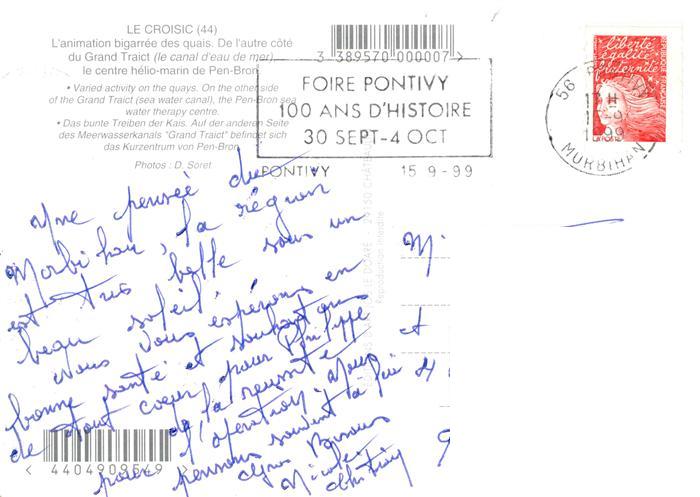 LE CROISIC (44)
L'animation bigarrée des quais. De l'autre côté
du Grand Traict (le canal d'eau de mer),
le centre hélio-marin de Pen-Bron
• Varied activity on the quays. On the other side
of the Grand Traict (sea water canal), the Pen-Bron sea
water therapy centre.
• Das bunte Treiben der Kais. Auf der anderen Seite
des Meerwasserkanals "Grand Traict" befindet sich
das Kurzentrum von Pen-Bron
Photos : D. Soret
3 389570 000007
FOIRE PONTIVY
100 ANS D'HISTOIRE
30 SEPT-4 OCT
PONTIVY 15 9-99
liberté
égalité
fraternité
56
MORBIHAN
Une pensée du
Morbihan, la région
est très belle sous un
beau soleil.
Nous vous espérons en
bonne santé et souhaitons
de tout coeur pour Philippe
de la réussite
pour l'opération, nous
pensons souvent à lui
Nicole
M.
et
4404909549
Reproduction interdite